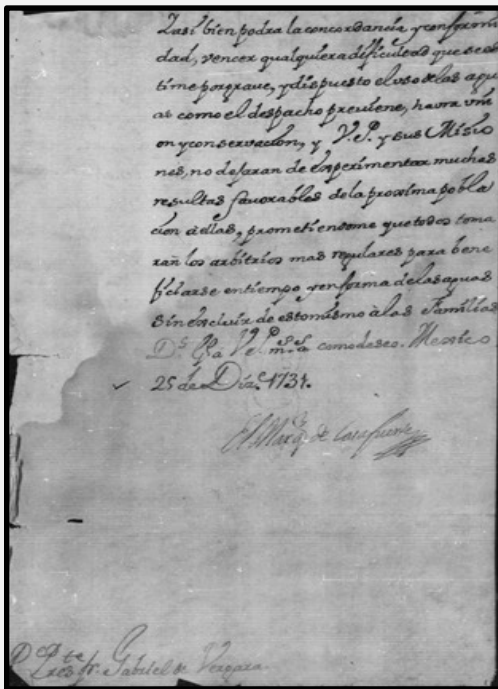 Y asi bien podra la concordancia y conformi
dad, vencer qualquiera dificultad que se es
time por grave, y dispuesto el uso de las agu
as como el despacho previene, havra uni
on y conservacion, y V. P. y sus Misio
nes, no dejaran de experimentar muchas
resultas favorables de la proxima pobla
cion à ellas, prometiendome que todos toma
ran los arbitrios mas regulares para bene
ficiarse en tiempo y en forma de las aguas
sin excluir de esto mismo à las Familias
D.s G.e a V. P. m.s a.s como deseo. Mexico
25 de Diz.e 1731.
El Marq.s de Casafuerte
P. Pres.te fr. Gabriel de Vergara.